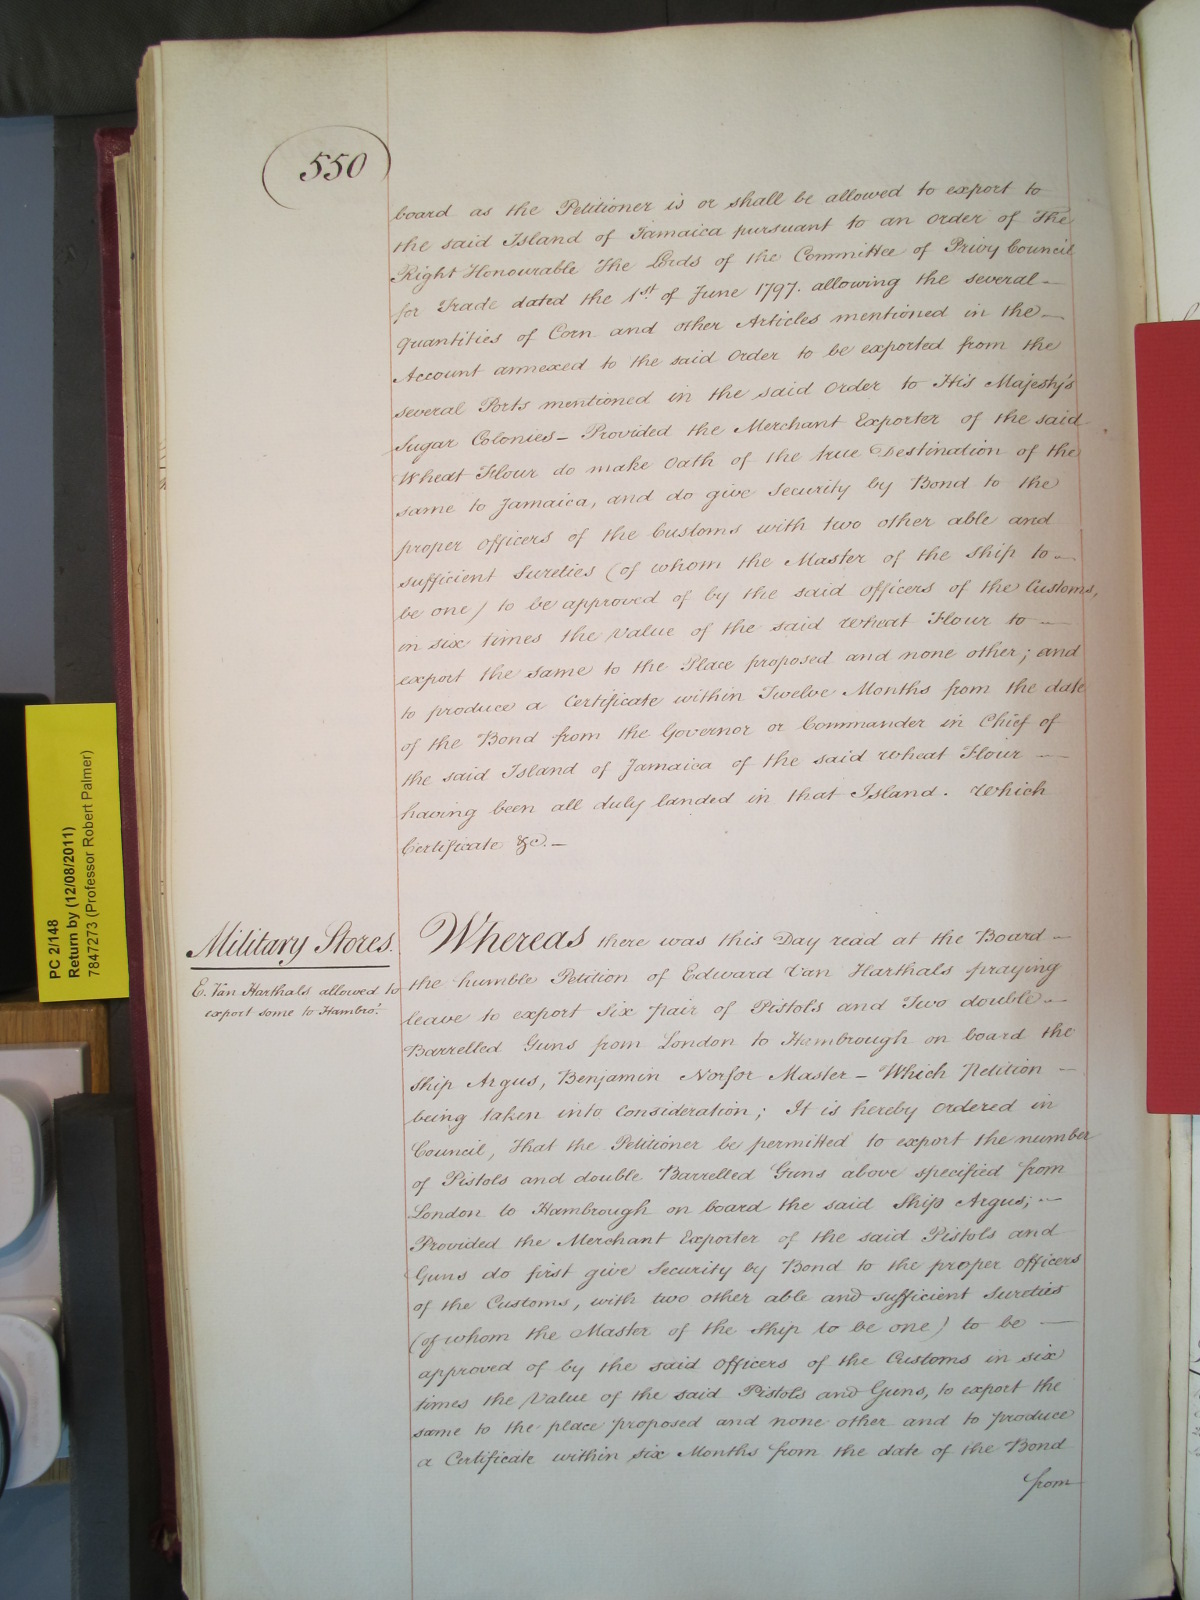 550
board as the Petitioner is or shall be allowed to export to
the said Island of Jamaica pursuant to an Order of The
Right Honourable The Lords of the Committee of Privy Council
for Trade dated the 1st of June 1797. allowing the several —
quantities of Corn and other Articles mentioned in the —
Account annexed to the said Order to be exported from the
several Ports mentioned in the said Order to His Majesty's
Sugar Colonies — Provided the Merchant Exporter of the said
Wheat Flour do make Oath of the true Destination of the
same to Jamaica, and do give Security by Bond to the
proper Officers of the Customs with two other able and
sufficient Sureties (of whom the Master of the Ship to —
be one) to be approved of by the said Officers of the Customs,
in six times the Value of the said Wheat Flour to —
export the same to the Place proposed and none other; and
to produce a Certificate within Twelve Months from the date
of the Bond from the Governor or Commander in Chief of
the said Island of Jamaica of the said Wheat Flour —
having been all duly landed in that Island. Which
Certificate &c. —
Military Stores.
E. Van Harthals allowed to
export some to Hambro'.
Whereas there was this Day read at the Board —
the humble Petition of Edward Van Harthals praying
leave to export Six pair of Pistols and Two double —
Barrelled Guns from London to Hambrough on board the
Ship Argus, Benjamin Norfor Master — Which Petition —
being taken into Consideration; It is hereby Ordered in
Council, That the Petitioner be permitted to export the number
of Pistols and double Barrelled Guns above specified from
London to Hambrough on board the said Ship Argus; —
Provided the Merchant Exporter of the said Pistols and
Guns do first give Security by Bond to the proper Officers
of the Customs, with two other able and sufficient Sureties
(of whom the Master of the Ship to be one) to be —
approved of by the said Officers of the Customs in six
times the Value of the said Pistols and Guns, to export the
same to the place proposed and none other and to produce
a Certificate within six Months from the date of the Bond
from
PC 2/148
Return by (12/08/2011)
7847273 (Professor Robert Palmer)